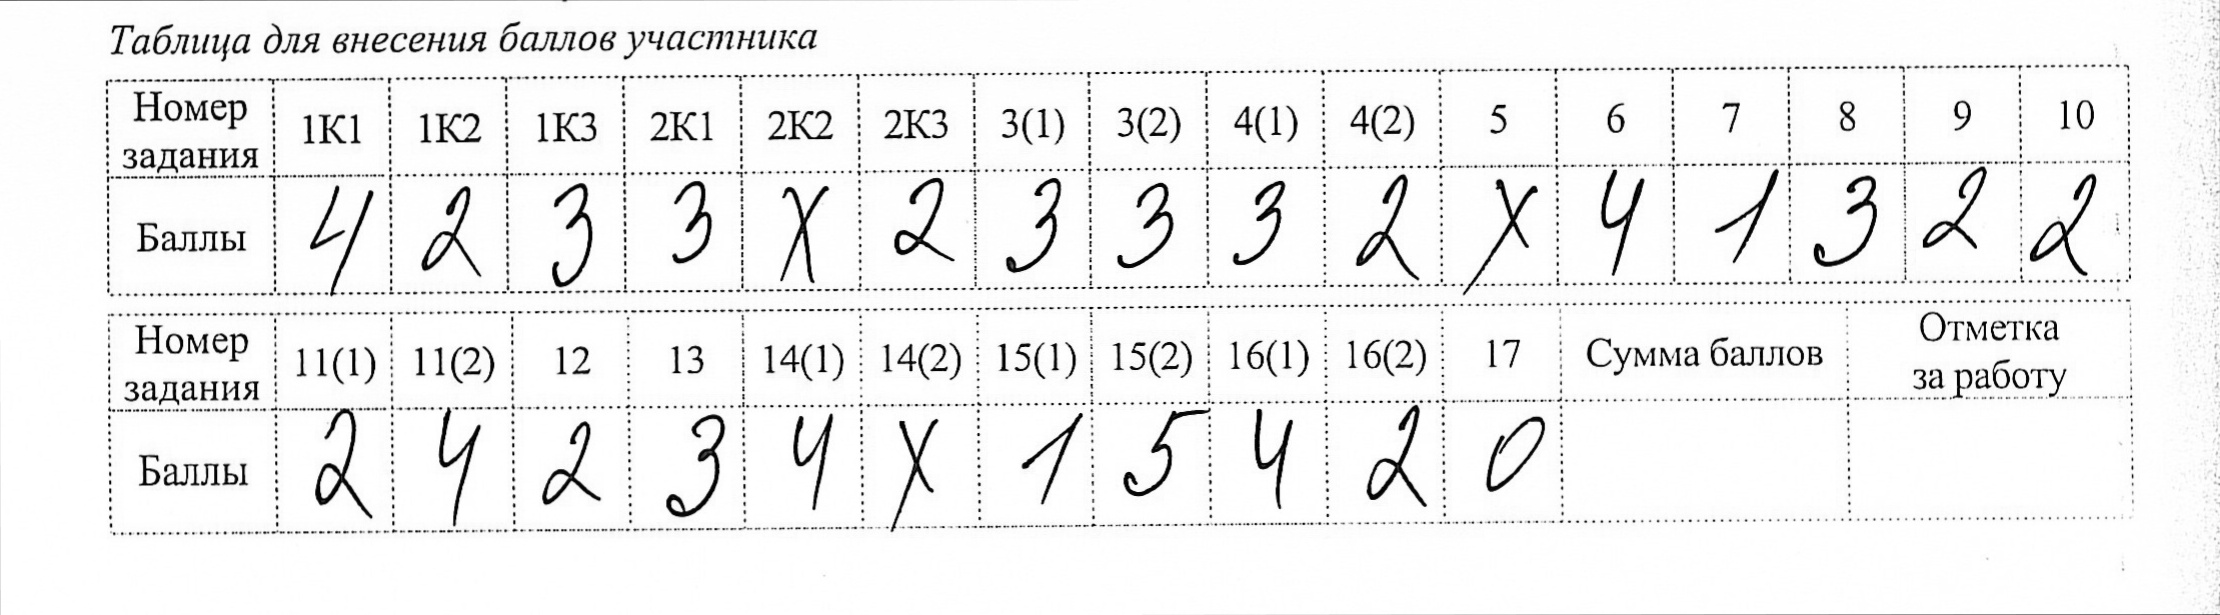 Таблица для внесения баллов участника
Номер задания 1К1 1К2 1К3 2К1 2К2 2К3 3(1) 3(2) 4(1) 4(2) 5 6 7 8 9 10
Баллы 4 2 3 3 X 2 3 3 3 2 X 4 1 3 2 2
Номер задания 11(1) 11(2) 12 13 14(1) 14(2) 15(1) 15(2) 16(1) 16(2) 17 Сумма баллов Отметка за работу
Баллы 2 4 2 3 4 X 1 5 4 2 0